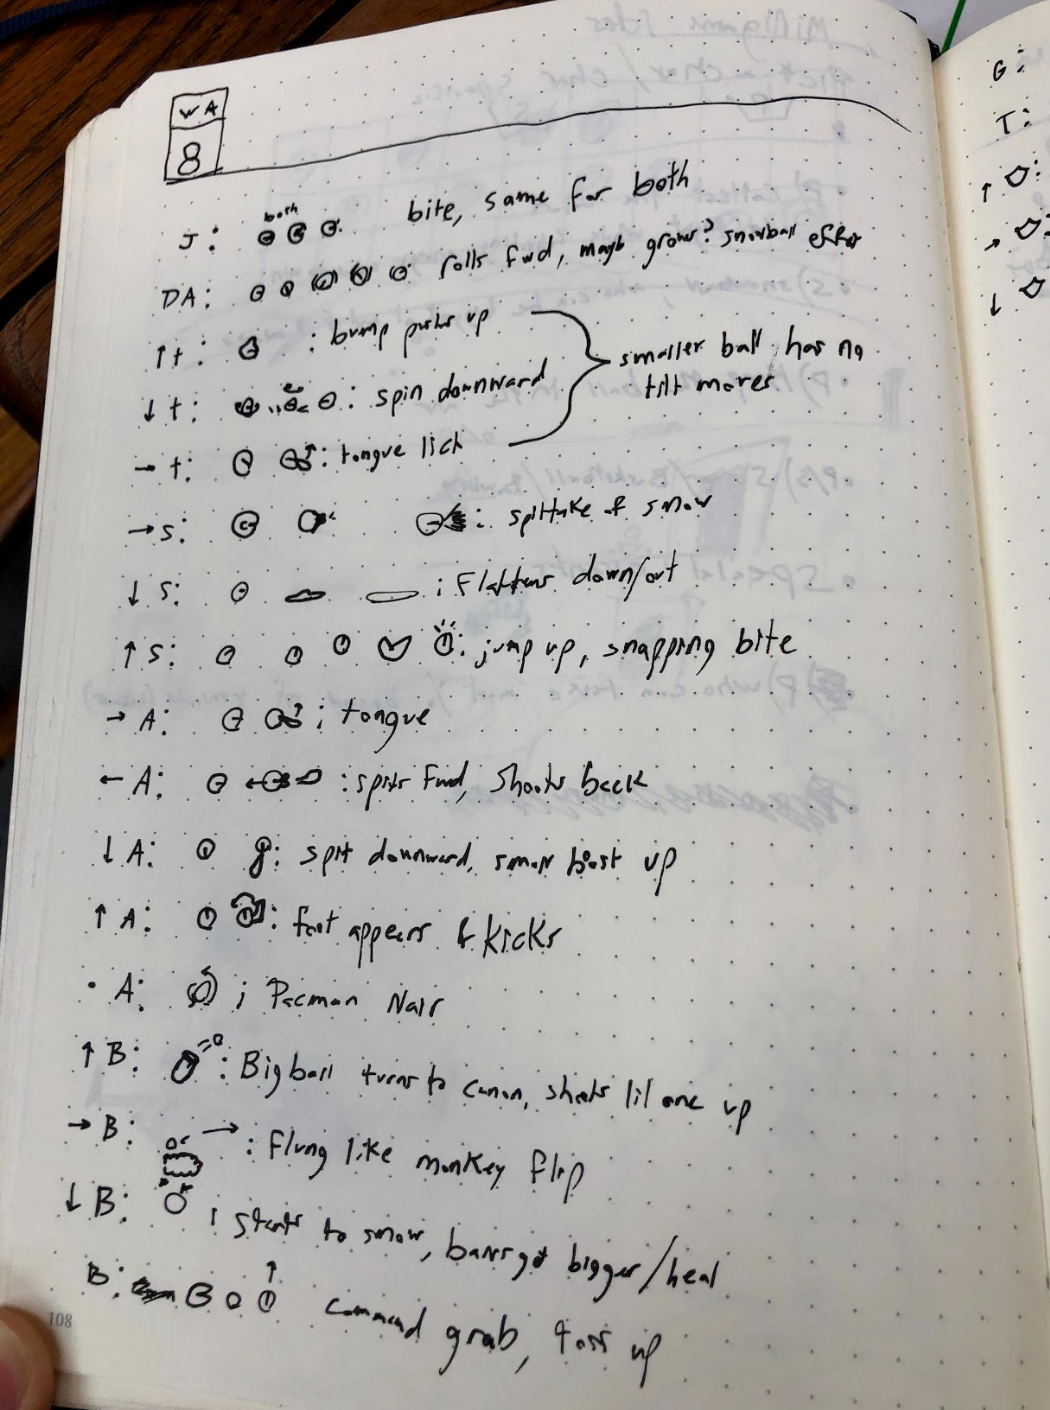 WA
8
both
J: bite, same for both
DA: rolls fwd, mayb grows? snowball effect
↑t: : bump pushes up
↓t: : spin downward
→t: : tongue lick
smaller ball has no
tilt moves
→s: : spittake of snow
↓s: : Flattens down/out
↑s: : jump up, snapping bite
→A: : tongue
←A: : spits Fwd, Shoots back
↓A: : spit downward, small boost up
↑A: : foot appears & kicks
·A: : Pacman Nair
↑B: : Big ball turns to canon, shoots lil one up
→B: : Flung like monkey flip
↓B: : starts to snow, balls get bigger/heal
B: command grab, toss up
108
G:
T:
↑
→
↓